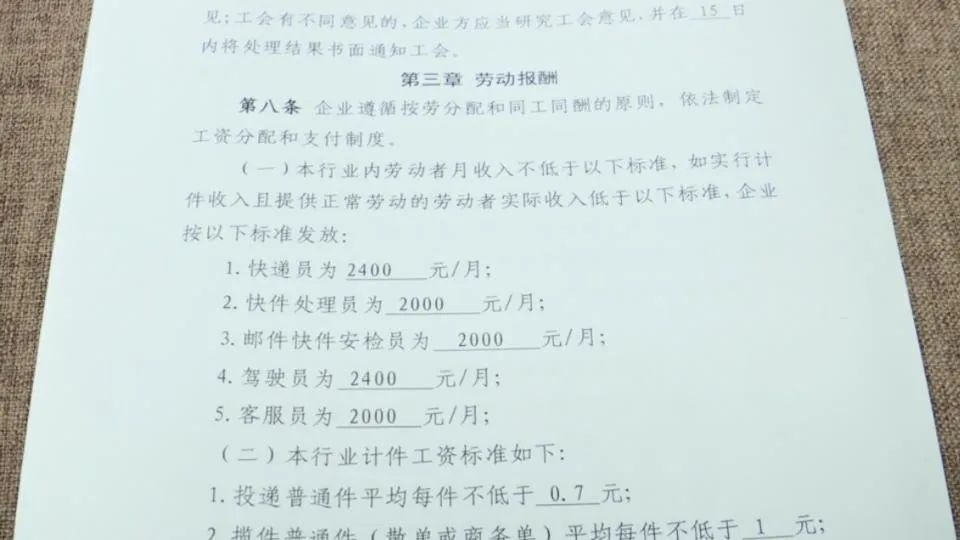 见；工会有不同意见的，企业方应当研究工会意见，并在 15 日
内将处理结果书面通知工会。
第三章 劳动报酬
第八条 企业遵循按劳分配和同工同酬的原则，依法制定
工资分配和支付制度。
（一）本行业内劳动者月收入不低于以下标准，如实行计
件收入且提供正常劳动的劳动者实际收入低于以下标准，企业
按以下标准发放：
1. 快递员为 2400 元/月；
2. 快件处理员为 2000 元/月；
3. 邮件快件安检员为 2000 元/月；
4. 驾驶员为 2400 元/月；
5. 客服员为 2000 元/月；
（二）本行业计件工资标准如下：
1. 投递普通件平均每件不低于 0.7 元；
2. 揽件普通件（散单或商务单）平均每件不低于 1 元；